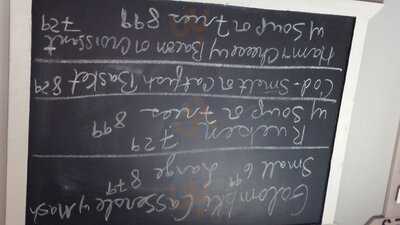 Golompki Casserole w/ Mash
Small 6.99 Large 8.79
Rueben 7.29
w/ Soup or Fries 8.99
Cod - Smelt or Catfish Basket 8.29
Ham + Cheese w/ Bacon on Croissant 7.29
w/ Soup or Fries 8.99